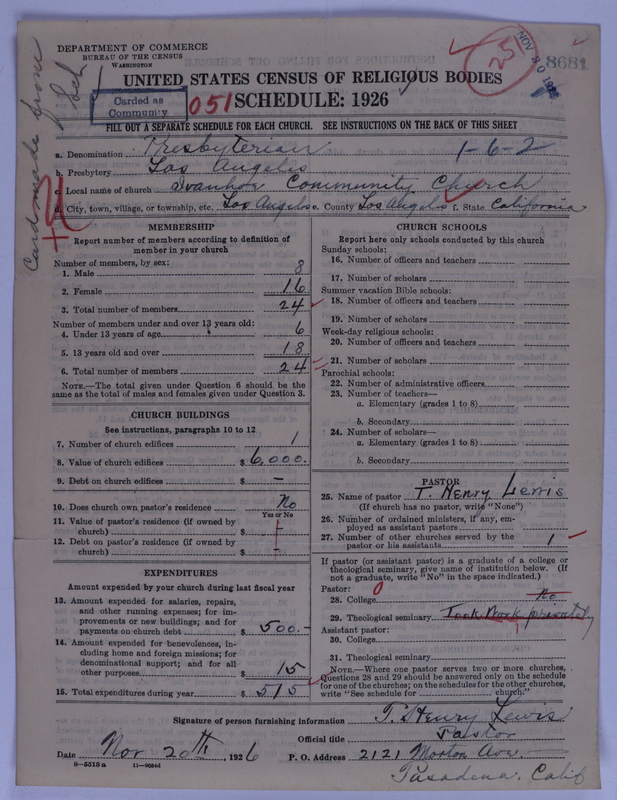 DEPARTMENT OF COMMERCE
BUREAU OF THE CENSUS
WASHINGTON
NOV 30
25
8681
UNITED STATES CENSUS OF RELIGIOUS BODIES
Carded as Community
051
SCHEDULE: 1926
Card made from Sch
FILL OUT A SEPARATE SCHEDULE FOR EACH CHURCH. SEE INSTRUCTIONS ON THE BACK OF THIS SHEET
a. Denomination Presbyterian 1-6-2
b. Presbytery Los Angeles
c. Local name of church Ivanhoe Community Church
d. City, town, village, or township, etc. Los Angeles e. County Los Angeles f. State California
MEMBERSHIP
Report number of members according to definition of member in your church
Number of members, by sex:
1. Male 8
2. Female 16
3. Total number of members 24
Number of members under and over 13 years old:
4. Under 13 years of age 6
5. 13 years old and over 18
6. Total number of members 24
NOTE.—The total given under Question 6 should be the same as the total of males and females given under Question 3.
CHURCH BUILDINGS
See instructions, paragraphs 10 to 12
7. Number of church edifices 1
8. Value of church edifices $ 6,000.
9. Debt on church edifices $ –
10. Does church own pastor's residence No
Yes or No
11. Value of pastor's residence (if owned by church) $ –
12. Debt on pastor's residence (if owned by church) $ –
EXPENDITURES
Amount expended by your church during last fiscal year
13. Amount expended for salaries, repairs, and other running expenses; for improvements or new buildings; and for payments on church debt $ 500.
14. Amount expended for benevolences, including home and foreign missions; for denominational support; and for all other purposes 15
15. Total expenditures during year $ 515
CHURCH SCHOOLS
Report here only schools conducted by this church
Sunday schools:
16. Number of officers and teachers
17. Number of scholars
Summer vacation Bible schools:
18. Number of officers and teachers
19. Number of scholars
Week-day religious schools:
20. Number of officers and teachers
21. Number of scholars
Parochial schools:
22. Number of administrative officers
23. Number of teachers—
a. Elementary (grades 1 to 8)
b. Secondary
24. Number of scholars—
a. Elementary (grades 1 to 8)
b. Secondary
PASTOR
25. Name of pastor T. Henry Lewis
(If church has no pastor, write "None")
26. Number of ordained ministers, if any, employed as assistant pastors
27. Number of other churches served by the pastor or his assistants 1
If pastor (or assistant pastor) is a graduate of a college or theological seminary, give name of institution below. (If not a graduate, write "No" in the space indicated.)
Pastor: 0
28. College No
29. Theological seminary Took Work privately
Assistant pastor:
30. College
31. Theological seminary
NOTE.—Where one pastor serves two or more churches, Questions 28 and 29 should be answered only on the schedule for one of the churches; on the schedules for the other churches, write "See schedule for church."
Signature of person furnishing information T. Henry Lewis
Official title Pastor
Date Nov 20th, 1926 P. O. Address 2121 Morton Ave.
8—5518a 11—9056d
Pasadena, Calif